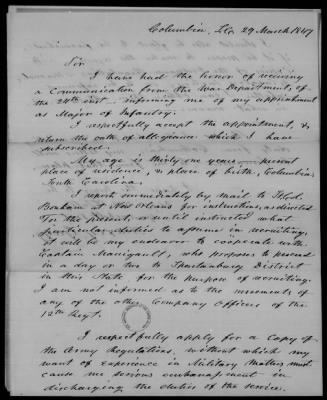 Columbia, So. Ca. 29 March 1847
Sir
I have had the honor of receiving
a Communication from the War Department, of
the 24th inst. informing me of my appointment
as Major of Infantry.
I respectfully accept the appointment, &
return the oath of allegiance which I have
subscribed.
My age is thirty one years — present
place of residence, & place of birth, Columbia,
South Carolina.
I report immediately by mail to
Bonham at New Orleans for instructions, as directed.
For the present, or until instructed what
particular duties to assume in recruiting,
it will be my endeavor to cooperate with
Captain Manigault, who proposes to proceed
in a day or two to Spartanburg District
in this State for the purpose of recruiting.
I am not informed as to the movements
of any of the other Company Officers of the
12th Regt.
I respectfully apply for a Copy of
the Army Regulations, without which my
want of experience in Military matters must
cause me serious embarrassment in
discharging the duties of the service.